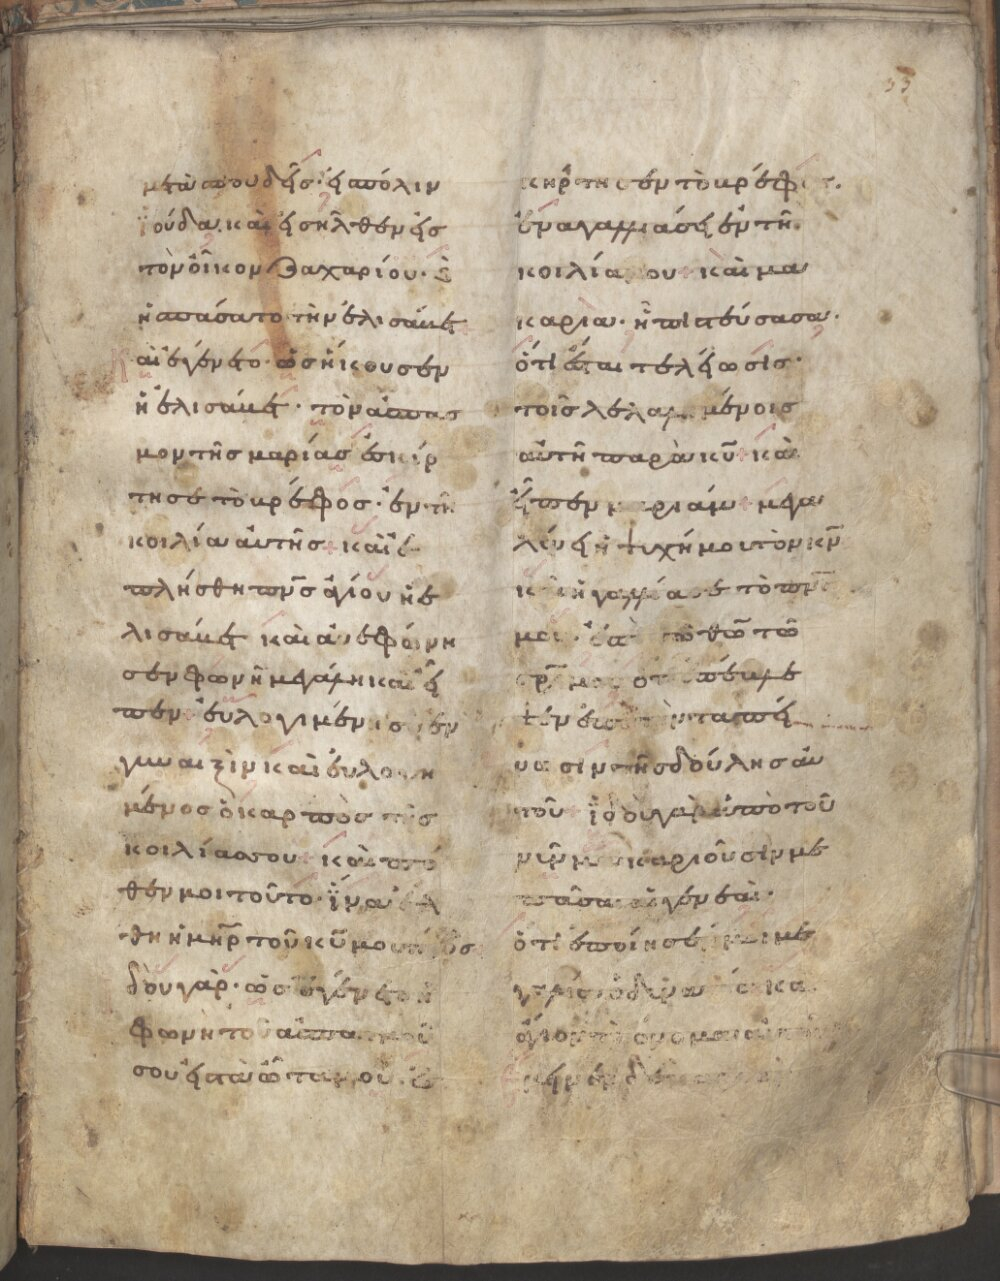 33
μετὰ σπουδῆς· εἰς πόλιν
ϊούδα· καὶ εἰσῆλθεν εἰς
τὸν οἶκον Ζαχαρίου· καὶ
ἠσπάσατο τὴν ἐλισάβετ
Και ἐγένετο· ὡς ἤκουσεν
ἡ ἐλισάβετ· τὸν ἀσπασ
μον τῆς μαρίας ἐσκίρ
τησε τὸ βρέφος· ἐν τῆ
κοιλία αὐτῆς + καὶ ἐ
πλήσθη πνς ἁγίου ἡ ἐ
λισάβετ καὶ ἀνεφώνη
σεν φωνῆ μεγάλη καὶ εἶ
πεν εὐλογιμένη σὺ ἐν
γυναιξὶν καὶ εὐλογη
μένος ὁ καρπὸς τῆς
κοιλίας σου + καὶ πό
θεν μοι τοῦτο· ἵνα ἔλ
θη ἡ μηρ τοῦ κυ μου
δοὺ γὰρ· ὡς ἐγένετο ἡ
φωνὴ τοῦ ἀσπασμοῦ
σου εἰς τὰ ὦτα μου· ἐ
σκήρτησεν τὸ βρέφος·
ἐν ἀγαλλιάσει ἐν τῆ
κοιλία μου + καὶ μα
καρία· ἡ πιστεύσασα·
ὅτι ἔσται τελείωσις·
τοῖς λελαλημένοις
αὐτῆ παρὰ κυ + καὶ
εἶπεν μαριάμ + μεγα
λύνει ἡ ψυχή μου τὸν κν
καὶ ἠγαλλίασε τὸ πνα
μου· ἐπὶ τῶ θω τῶ
σρι μου ὅτι ἐπέβλε
ψεν ἐπὶ τὴν ταπεί
νωσιν τῆς δούλης αὐ
τοῦ + ϊδοὺ γὰρ ἀπὸ τοῦ
νῦν μακαριοῦσιν με
πᾶσαι αἱ γενεαὶ·
ὅτι ἐποίησέ μοι με
γαλεῖα ὁ δυνατός· καὶ
ἅγιον τὸ ὄνομα αὐτοῦ